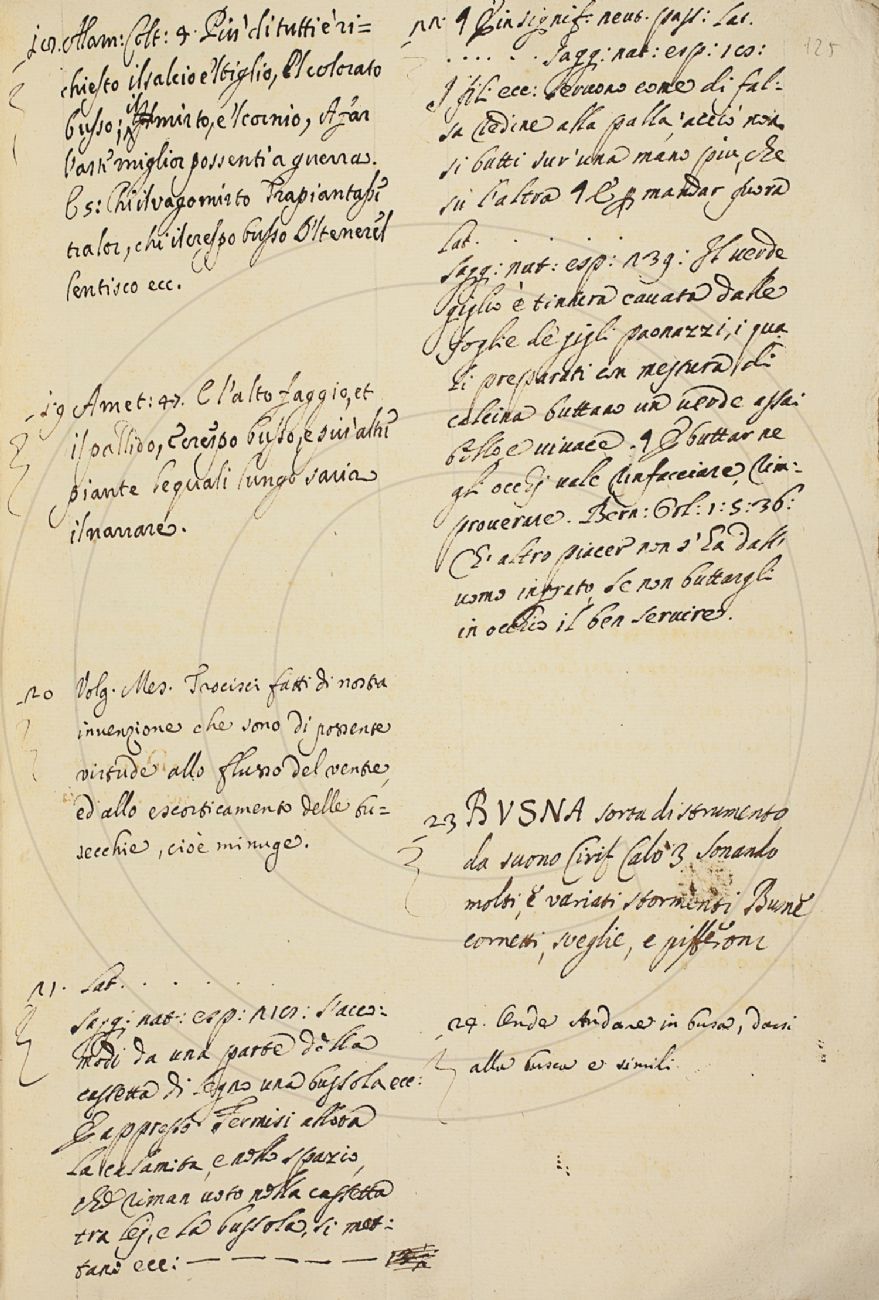 18. Alam: Colt: 4. Più di tutti è ri=
chiesto il salcio e 'l tiglio, E 'l colorato
busso; il mirto, e 'l cornio, A far
l'asti miglior possenti a guerra.
E 5: Chi il vago mirto Trapiantasse
tra lor, chi il crespo busso O 'l tenerel
lentisco ecc.
19 Amet: 47. E l'alto faggio, et
il pallido, e crespo busso, e più altri
piante le quali lungo saria
il narrare.
20 Volg. Mes. Trocisci fatti di nostra
invenzione che sono di possente
virtude allo flusso del ventre,
ed allo escorticamento delle bu=
secchie, cioè minuge.
21. Lat. . . . . .
Sagg: nat: esp: 218: S'acco:
modi da una parte della
cassetta di legno una bussola ecc:
E appresso Fermisi allora
la calamita, e nello spazio,
che riman voto nella cassetta
tra lei, e la bussola, si met:
tano ecc:
125
22. ¶ In signif. neut. pass: Lat.
. . . . . . Sagg: nat: esp: 100:
I fili ecc: servono come di fal:
sa redine alla palla, acciò non
si butti sur' una mano più, che
su l'altra ¶ E p mandar fuora
Lat. . . . .
Sagg: nat: esp: 239: Il verde
giglio è tintura cavata dalle
foglie de' gigli paonazzi, i qua
li preparati con mestura di
calcina buttano un verde assai
bello, e vivace. ¶ E buttar ne
gli occhj vale Rinfacciare, Rim=
proverare. Bern: Orl: 1: 5: 36:
Ch' altro piacer non s' ha dall'
uomo ingrato, Se non buttargli
in occhio il ben servire.
23 BVSNA sorta di strumento
da suono Cirif Calv 3 Sonando
molti, e variati stormenti Busne
cornetti, sveglie, e pifferoni
24. Onde Andare in busca, darsi
alla busca e simili